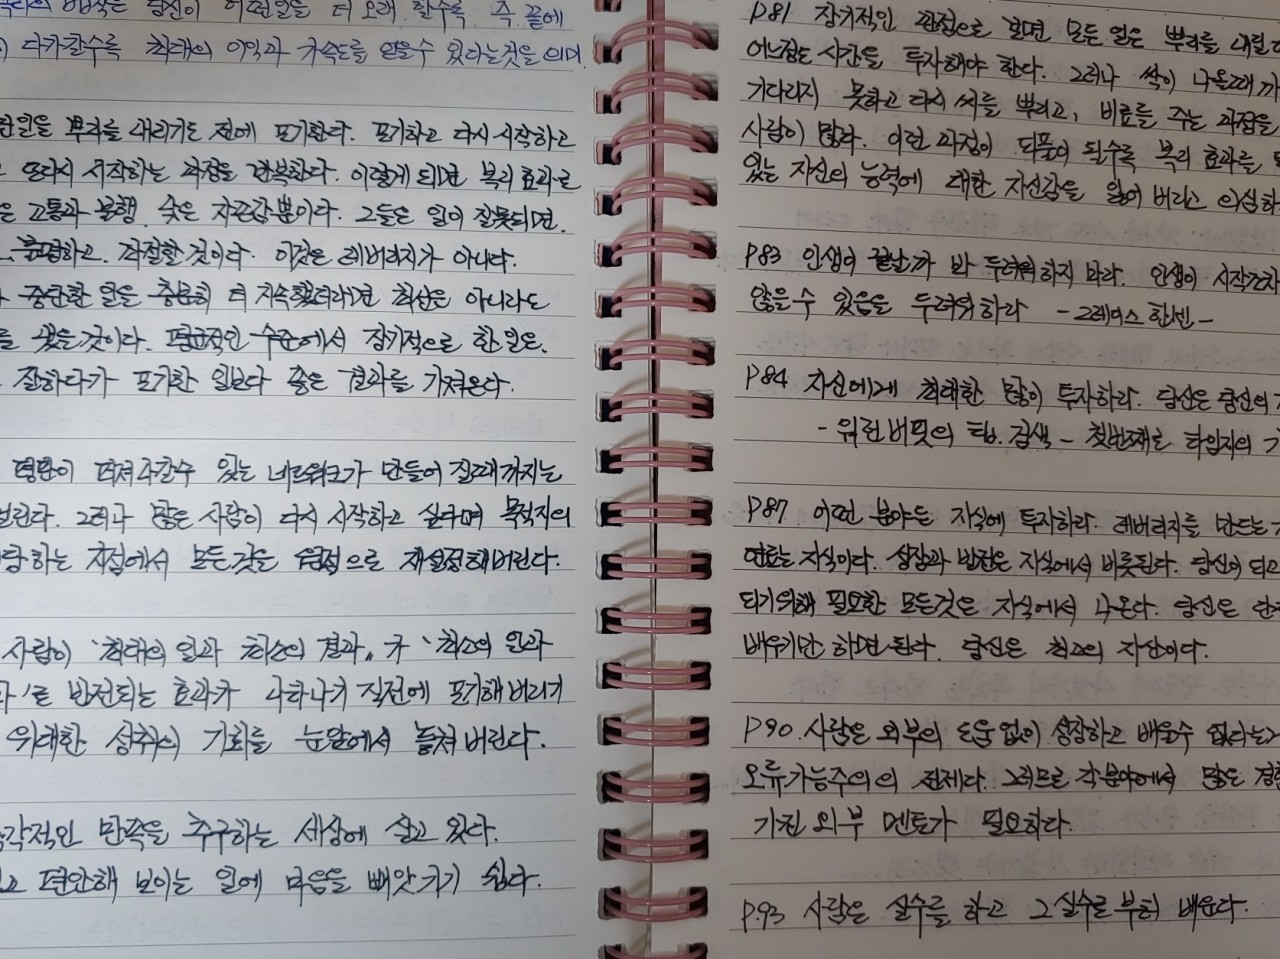 법칙은 당신이 어떤일을 더 오래 할수록, 즉 끝에
다가갈수록 최대의 이익과 가속도를 얻을수 있다는것을 의미
한일을 뿌리를 내리기도 전에 포기한다. 포기하고 다시 시작하고
또다시 시작하는 과정을 반복한다. 이렇게 되면 복리효과로
은 고통과 불행, 낮은 자존감뿐이다. 그들은 일이 잘못되면,
불평하고, 좌절할것이다. 이것은 레버리지가 아니다.
중단한 일을 충분히 더 지속했더라면 최선은 아니라도
를 맺을것이다. 평균적인 수준에서 장기적으로 한일은,
잘하다가 포기한 일보다 좋은 결과를 가져온다.
명판이 퍼져나갈수 있는 네트워크가 만들어 질때까지는
걸린다. 그러나 많은 사람이 다시 시작하고 실패하며 목적지의
하는 지점에서 모든것을 원점으로 재설정해버린다.
사람이 '최대의 일과 최소의 결과,, 가 '최소의 일과
'로 반전되는 효과가 나타나기 직전에 포기해버리기
위대한 성취의 기회를 눈앞에서 놓쳐버린다.
즉각적인 만족을 추구하는 세상에 살고 있다.
편안해 보이는 일에 마음을 빼앗기기 쉽다.
P81 장기적인 관점으로 보면 모든 일은 뿌리를 내릴
어느정도 시간을 투자해야 한다. 그러나 싹이 나올때까
기다리지 못하고 다시 씨를 뿌리고, 비료를 주는 과정을
사람이 많다. 이런 과정이 되풀이 될수록 복리 효과를
있는 자신의 능력에 대한 자신감을 잃어 버리고 의심하
P83 인생이 끝날까 봐 두려워하지 마라. 인생이 시작조차
않을수 있음을 두려워하라 -그레이스 한센-
P84 자신에게 최대한 많이 투자하라. 당신은 당신의
- 워런버핏의 tip. 검색 - 첫번째로 타임지의
P87 어떤 분야든 지식에 투자하라. 레버리지를 만드는
연료는 지식이다. 성장과 발전은 지식에서 비롯된다. 당신이 되고
되기위해 필요한 모든것은 지식에서 나온다. 당신은 단
배우기만 하면 된다. 당신은 최고의 자산이다.
P90 사람은 외부의 도움 없이 성장하고 배울수 없다는
오류가능주의의 전제다. 그러므로 각분야에서 많은 경험
가진 외부 멘토가 필요하다.
P.93 사람은 실수를 하고 그 실수로부터 배운다.